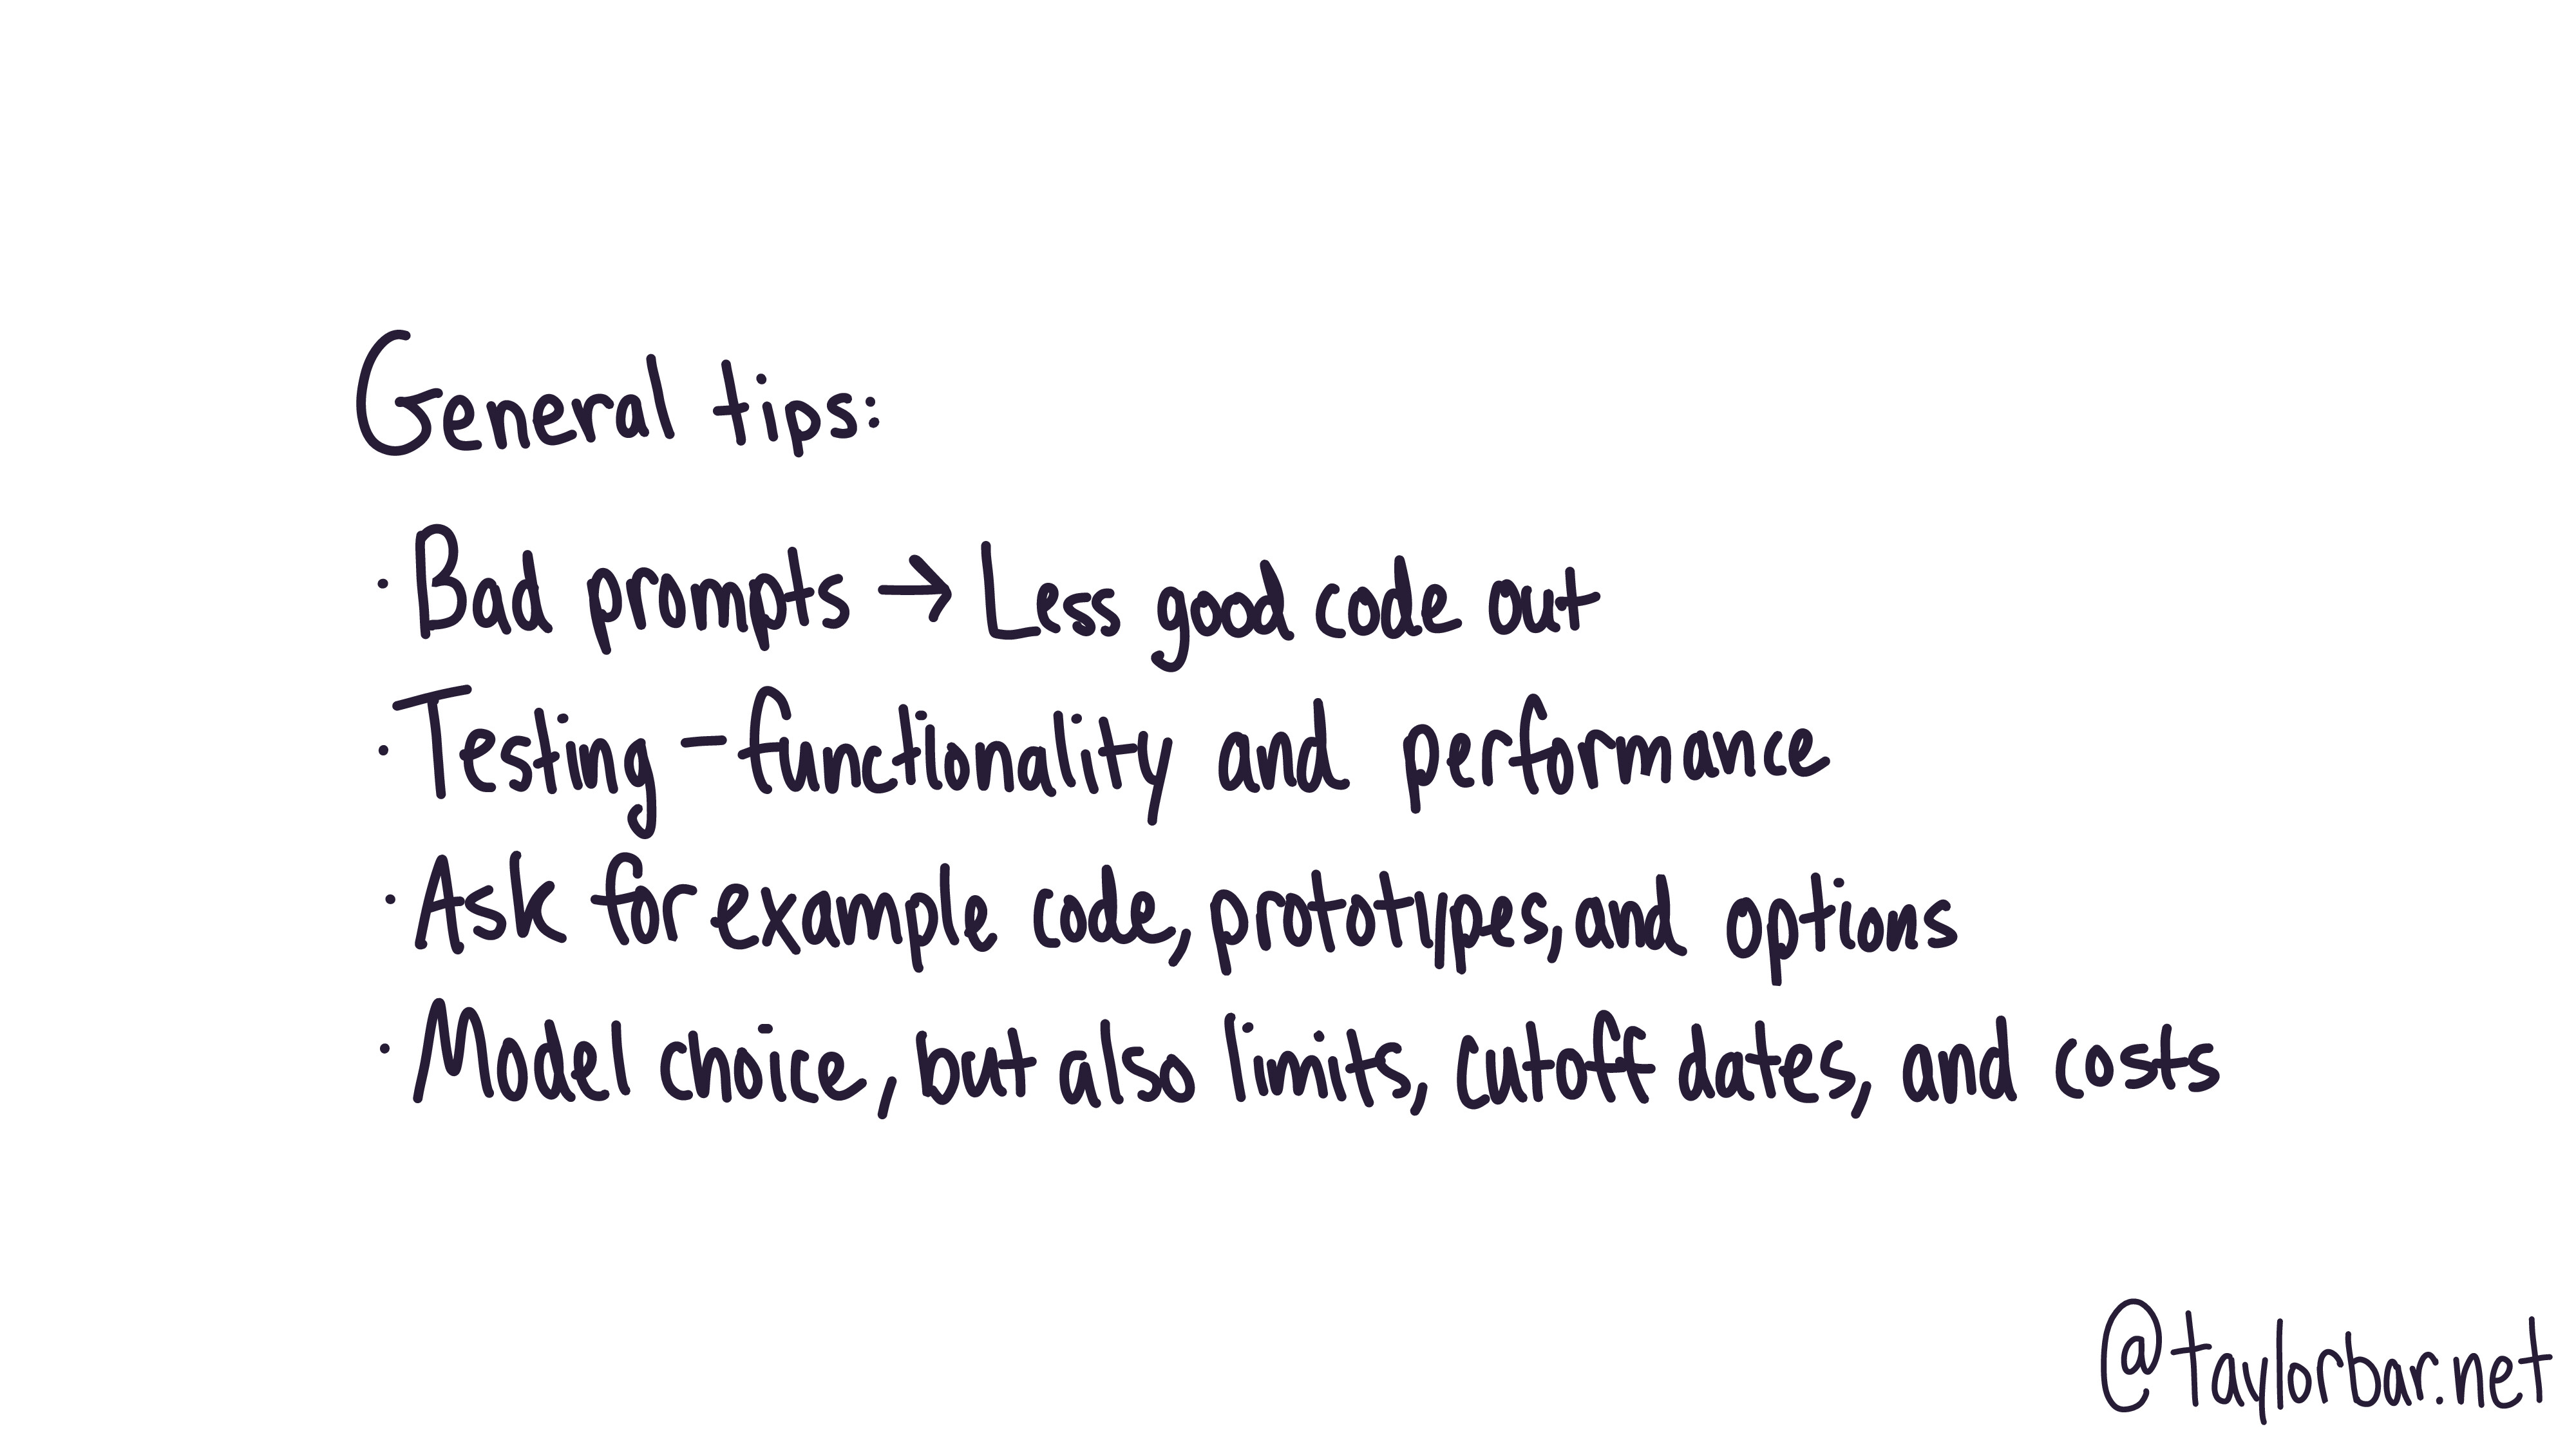 General tips:
· Bad prompts → Less good code out
· Testing - functionality and performance
· Ask for example code, prototypes, and options
· Model choice, but also limits, cutoff dates, and costs
@taylorbar.net